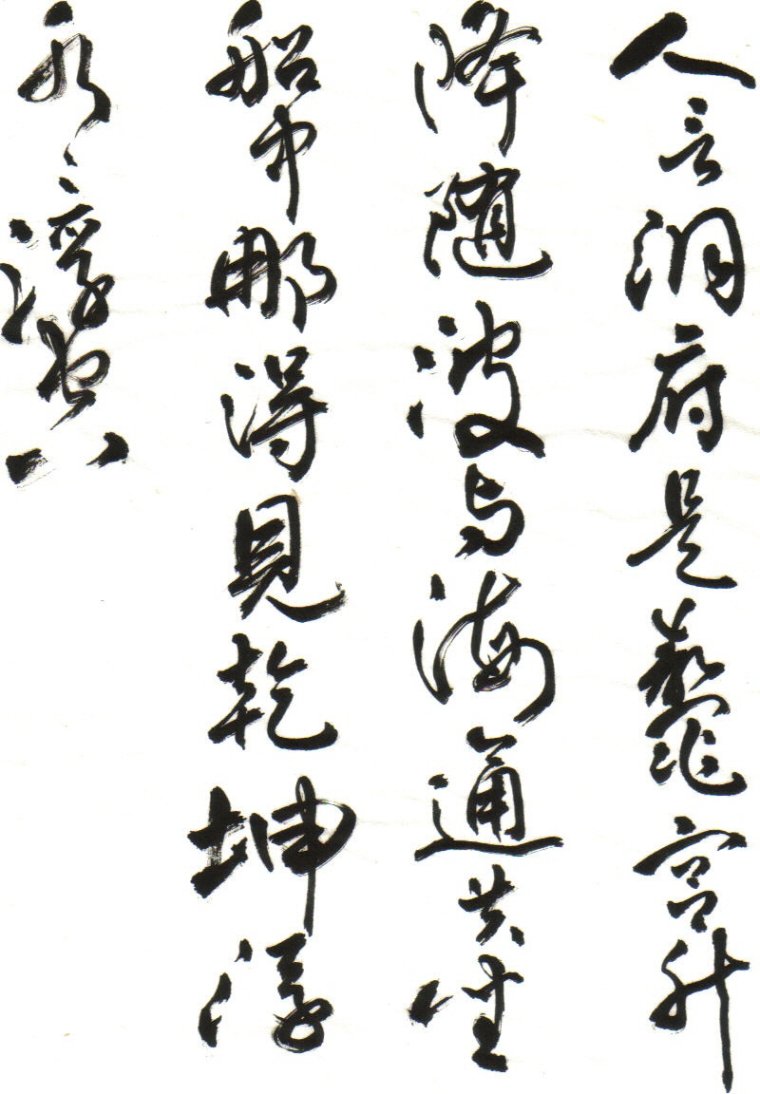 人言洞府是鼇宮升
降隨波与海通共坐
船中那得見乾坤浮
水々浮空八